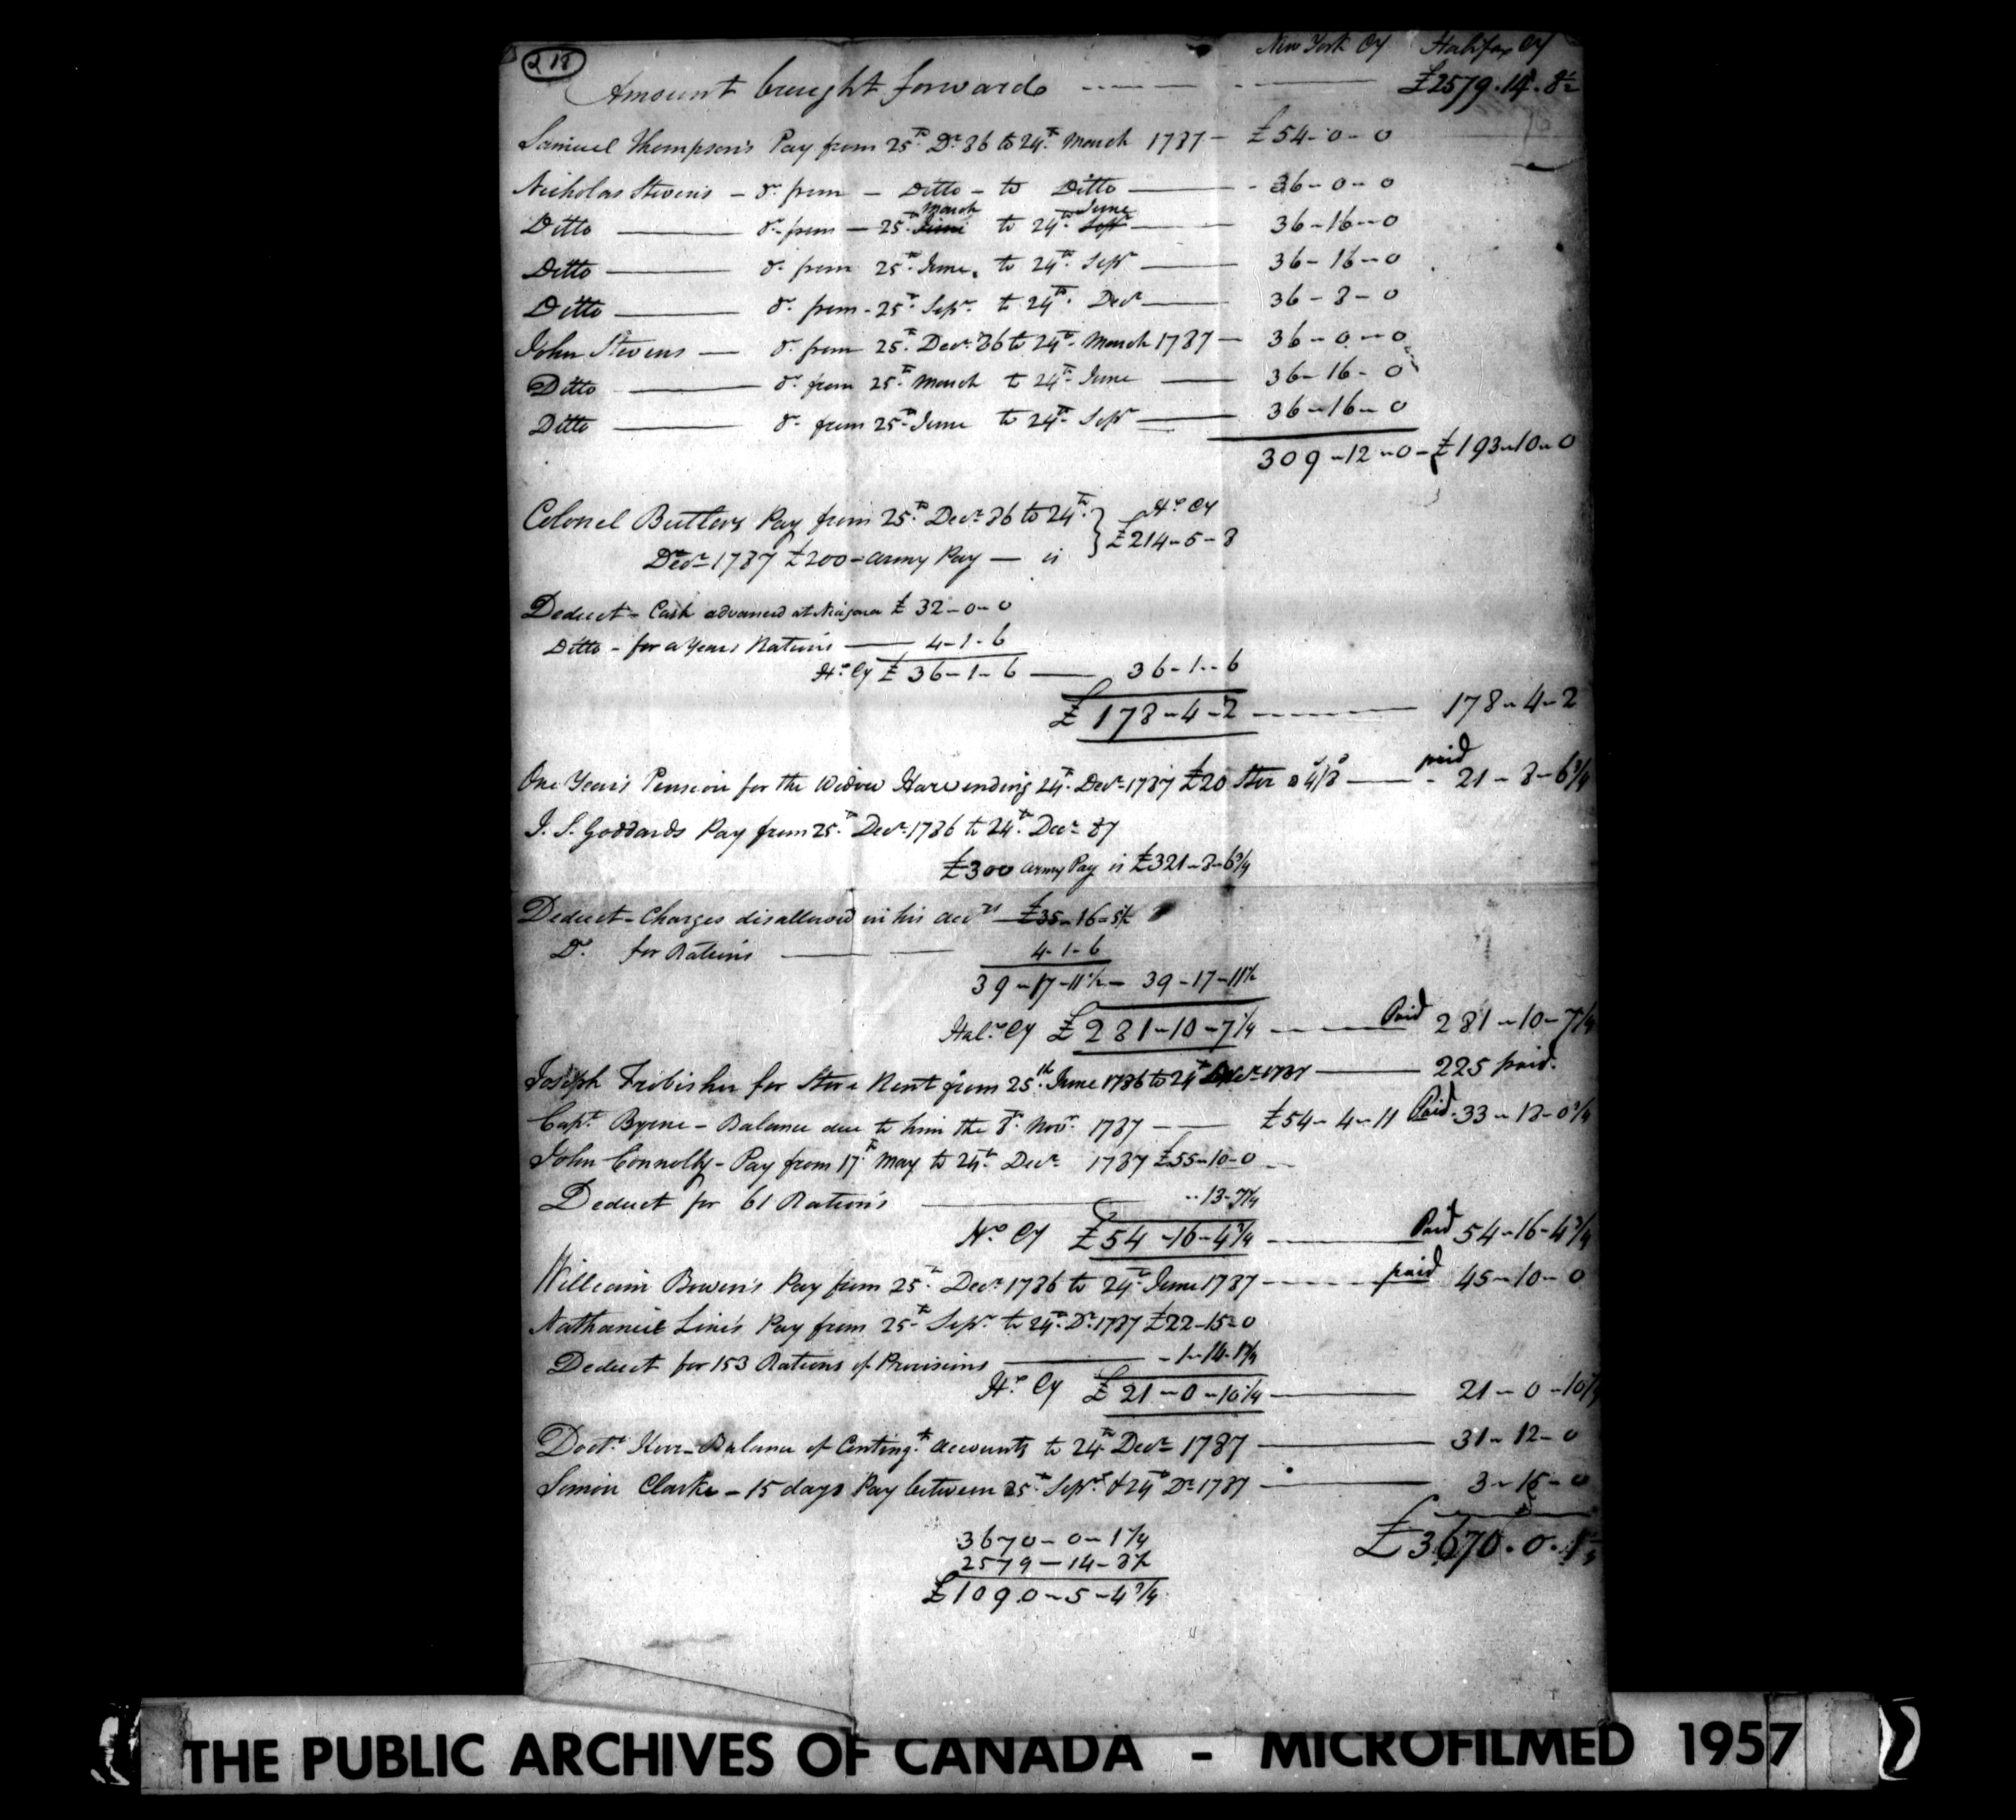 218
New York Cy Halifax Cy
Amount brought forward £2579.14.8½
Samuel Thompson's Pay from 25th Dr 86 to 24th March 1787 - £54-0-0
Nicholas Stevens - do from - Ditto - to Ditto - 36-0-0
Ditto do from - 25th June March to 24th Septr June 36-16-0
Ditto do from 25th June to 24th Septr 36-16-0
Ditto do from - 25th Septr to 24th Decr 36-8-0
John Stevens - do from 25th Decr 86 to 24th March 1787 - 36-0-0
Ditto do from 25th March to 24th June 36-16-0
Ditto do from 25th June to 24th Septr 36-16-0
309-12-0 - £193-10-0
Colonel Butlers Pay from 25th Decr 86 to 24th } Hx Cy
Decr 1787 £200 - Army Pay - is £214-5-8
Deduct - Cash advanced at Niagara £32-0-0
Ditto - for a Years Rations 4-1-6
Hx Cy £36-1-6 36-1-6
£178-4-2 178-4-2
One Year's Pension for the Widow Hare ending 24th Decr 1787 £20 Ster @ 4/8 - paid 21-8-6¾
J. S. Goddards Pay from 25th Decr 1786 to 24th Decr 87
£300 Army Pay is £321-8-6¾
Deduct - Charges disallowed in his accts £35-16-5½
Do for Rations 4-1-6
39-17-11½ - 39-17-11½
Halx Cy £281-10-7¼ Paid 281-10-7¼
Joseph Frobisher for Store Rent from 25th June 1786 to 24th Decr 1787 225 paid.
Capt Byrne - Balance due to him the 8th Novr 1787 £54-4-11 Paid 33-18-0¾
John Connolly - Pay from 17th May to 24th Decr 1787 £55-10-0
Deduct for 61 Rations 13-7¼
Hx Cy £54-16-4¾ Paid 54-16-4¾
William Bowen's Pay from 25th Decr 1786 to 24th June 1787 paid 45-10-0
Nathaniel Line's Pay from 25th Septr to 24th Dr 1787 £22-15-0
Deduct for 153 Rations of Provisions - 1-14-1¾
Hx Cy £21-0-10¼ 21-0-10¼
Doctr Kerr - Balance of Contingt accounts to 24th Decr 1787 31-12-0
Simon Clarke - 15 days Pay between 25th Septr & 24th Dr 1787 3-15-0
£3670.0.1¼
3670-0-1¼
2579-14-8½
£1090-5-4¾
THE PUBLIC ARCHIVES OF CANADA - MICROFILMED 1957